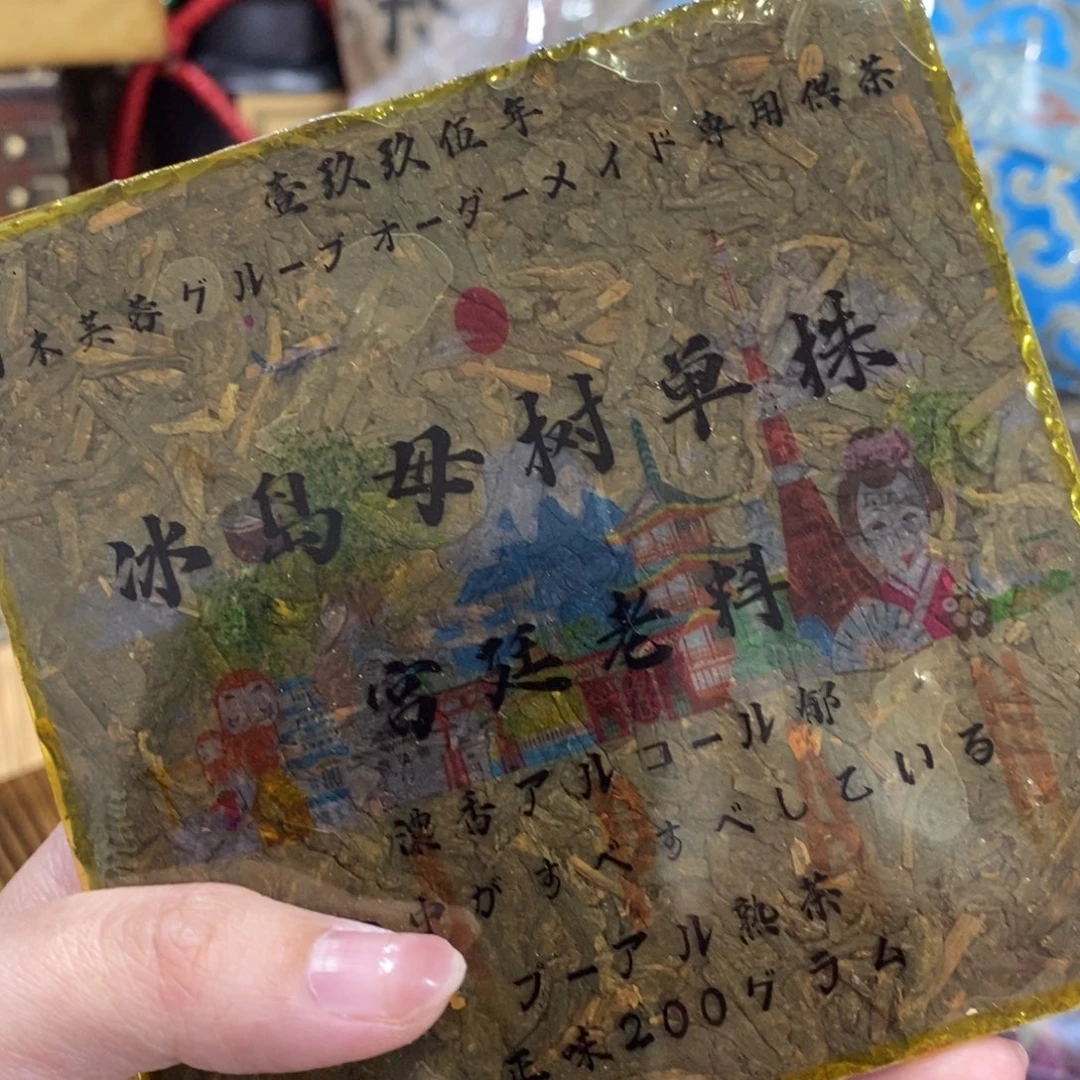 壹玖玖伍年
木芙蓉グループオーダーメイド専用供茶
冰島母树单株
宮廷老料
濃香アルコール郁
中がすべすべしている
プーアル熟茶
正味200グラム